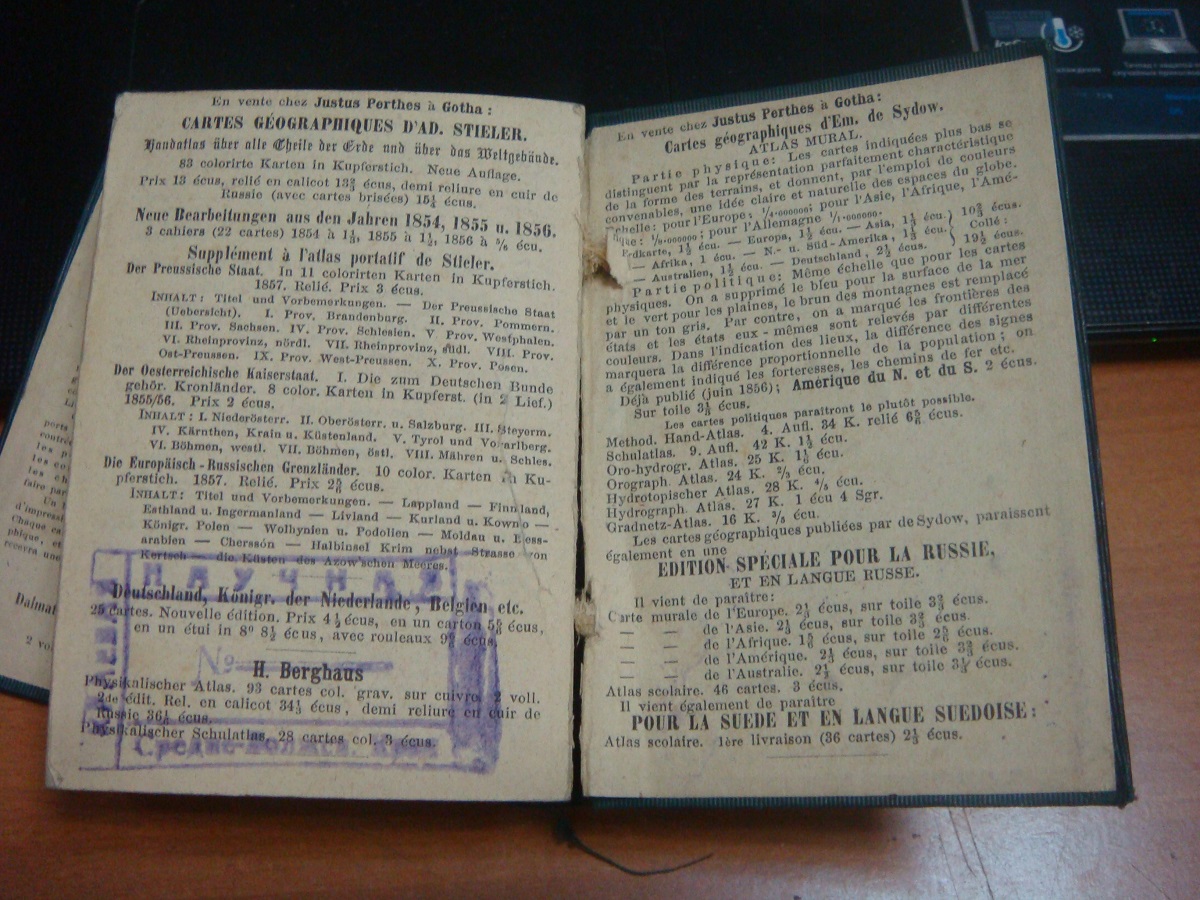 En vente chez Justus Perthes à Gotha:
CARTES GÉOGRAPHIQUES D'AD. STIELER.
Handatlas über alle Theile der Erde und über das Weltgebäude.
83 colorirte Karten in Kupferstich. Neue Auflage.
Prix 13 écus, relié en calicot 13⅔ écus, demi reliure en cuir de
Russie (avec cartes brisées) 15⅓ écus.
Neue Bearbeitungen aus den Jahren 1854, 1855 u. 1856.
3 cahiers (22 cartes) 1854 à 1⅓, 1855 à 1½, 1856 à écu.
Supplément à l'atlas portatif de Stieler.
Der Preussische Staat. In 11 colorirten Karten in Kupferstich.
1857. Relié. Prix 3 écus.
INHALT: Titel und Vorbemerkungen. — Der Preussische Staat
(Uebersicht). I. Prov. Brandenburg. II. Prov. Pommern.
III. Prov. Sachsen. IV. Prov. Schlesien. V. Prov. Westphalen.
VI. Rheinprovinz, nördl. VII. Rheinprovinz, südl. VIII. Prov.
Ost-Preussen. IX. Prov. West-Preussen. X. Prov. Posen.
Der Oesterreichische Kaiserstaat. I. Die zum Deutschen Bunde
gehör. Kronländer. 8 color. Karten in Kupferst. (in 2 Lief.)
1855/56. Prix 2 écus.
INHALT: I. Niederösterr. II. Oberösterr. u. Salzburg. III. Steyerm.
IV. Kärnthen, Krain u. Küstenland. V. Tyrol und Vorarlberg.
VI. Böhmen, westl. VII. Böhmen, östl. VIII. Mähren u. Schles.
Die Europäisch-Russischen Grenzländer. 10 color. Karten in Ku-
pferstich. 1857. Relié. Prix écus.
INHALT: Titel und Vorbemerkungen. — Lappland — Finnland,
Esthland u. Ingermanland — Livland — Kurland u. Kowno —
Königr. Polen — Wolhynien u. Podolien — Moldau u. Bess-
arabien — Chersson — Halbinsel Krim nebst Strasse von
Kertsch — die Küsten des Azow'schen Meeres.
Deutschland, Königr. der Niederlande, Belgien etc.
25 cartes. Nouvelle édition. Prix 4⅓ écus, en un carton écus,
en un étui in 8º 8½ écus, avec rouleaux écus.
H. Berghaus
Physikalischer Atlas. 93 cartes col. grav. sur cuivre 2 voll.
2de édit. Rel. en calicot 34⅓ écus, demi reliure en cuir de
Russie écus.
Physikalischer Schulatlas, 28 cartes col. 3 écus.
НАУЧНАЯ
№
En vente chez Justus Perthes à Gotha:
Cartes géographiques d'Em. de Sydow.
ATLAS MURAL.
Partie physique: Les cartes indiquées plus bas se
distinguent par la représentation parfaitement caractéristique
de la forme des terrains, et donnent, par l'emploi de couleurs
convenables, une idée claire et naturelle des espaces du globe.
Echelle: pour l'Europe: pour l'Asie, l'Afrique, l'Amé-
rique: pour l'Allemagne
Erdkarte, 1½ écu. — Europa, 1½ écu. — Asia, 1⅓ écu.
— Afrika, 1 écu. — N.- u. Süd-Amerika, 1⅓ écu. 10⅔ écus.
— Australien, 1½ écu. — Deutschland, 2⅓ écus. Collé: 19⅓ écus.
Partie politique: Même échelle que pour les cartes
physiques. On a supprimé le bleu pour la surface de la mer
et le vert pour les plaines, le brun des montagnes est remplacé
par un ton gris. Par contre, on a marqué les frontières des
états et les états eux-mêmes sont relevés par différentes
couleurs. Dans l'indication des lieux, la différence des signes
marquera la différence proportionnelle de la population; on
a également indiqué les forteresses, les chemins de fer etc.
Déjà publié (juin 1856); Amérique du N. et du S. 2 écus.
Sur toile 3⅓ écus.
Les cartes politiques paraîtront le plutôt possible.
Method. Hand-Atlas. 4. Aufl. 34 K. relié écus.
Schulatlas. 9. Aufl. 42 K. 1⅓ écu.
Oro-hydrogr. Atlas. 25 K. 1⅓ écu.
Orograph. Atlas. 24 K. ⅔ écu.
Hydrotopischer Atlas. 28 K. ⅘ écu.
Hydrograph. Atlas. 27 K. 1 écu 4 Sgr.
Gradnetz-Atlas. 16 K. ⅗ écu.
Les cartes géographiques publiées par de Sydow, paraissent
également en une
EDITION SPÉCIALE POUR LA RUSSIE,
ET EN LANGUE RUSSE.
Il vient de paraître:
Carte murale de l'Europe. 2⅓ écus, sur toile 3⅔ écus.
— — de l'Asie. 2⅓ écus, sur toile 3⅔ écus.
— — de l'Afrique. écus, sur toile écus.
— — de l'Amérique. 2⅓ écus, sur toile 3⅔ écus.
— — de l'Australie. 2⅓ écus, sur toile écus.
Atlas scolaire. 46 cartes. 3 écus.
Il vient également de paraître
POUR LA SUEDE ET EN LANGUE SUEDOISE:
Atlas scolaire. 1ère livraison (36 cartes) 2⅓ écus.